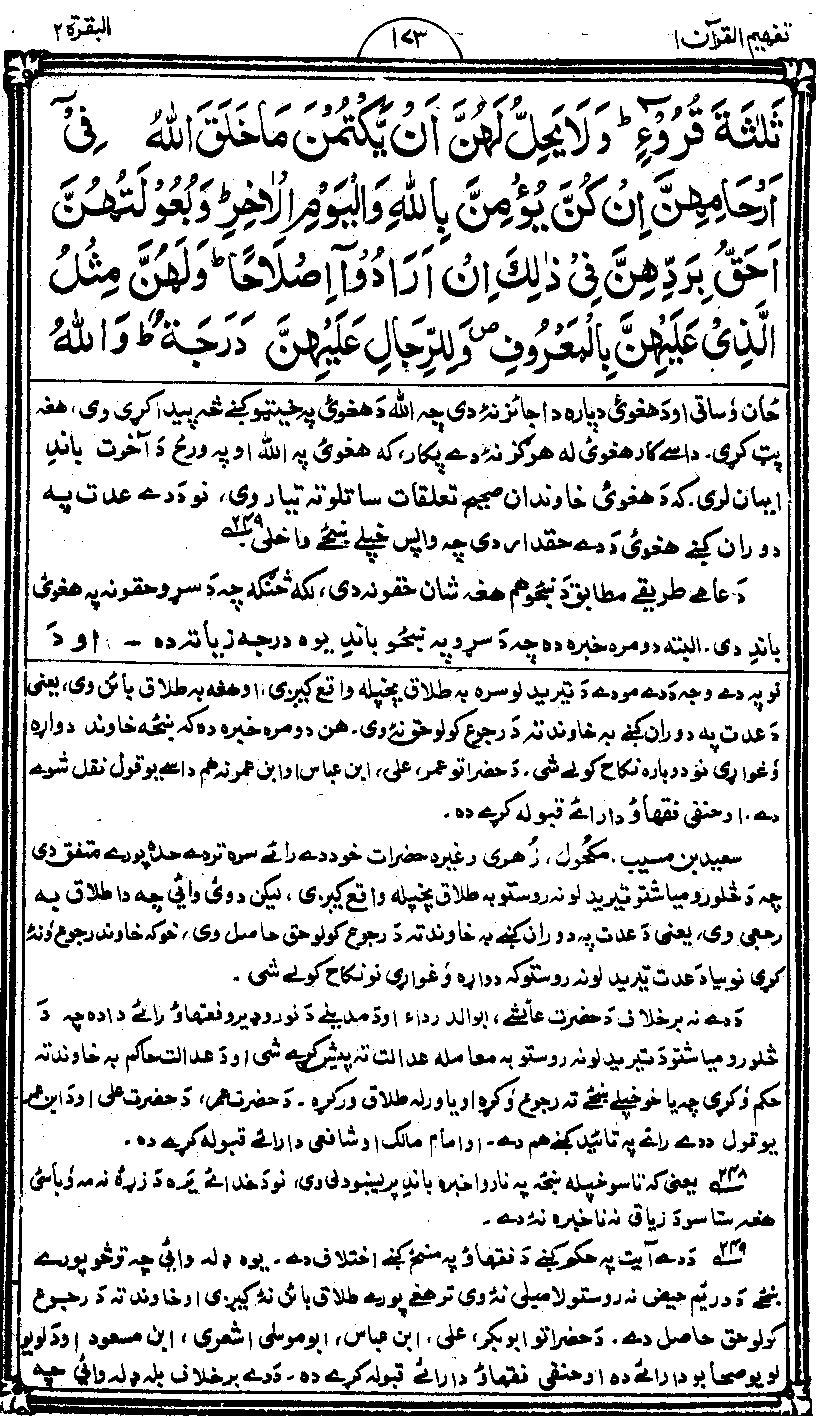 تفهیم القرآن ۱
۱۷۳
البقرة ۲
ثَلٰثَةَ قُرُوْٓءٍ ؕ وَلَا يَحِلُّ لَهُنَّ اَنْ يَّكْتُمْنَ مَا خَلَقَ اللّٰهُ فِىْٓ
اَرْحَامِهِنَّ اِنْ كُنَّ يُؤْمِنَّ بِاللّٰهِ وَالْيَوْمِ الْاٰخِرِ ؕ وَبُعُوْلَتُهُنَّ
اَحَقُّ بِرَدِّهِنَّ فِىْ ذٰلِكَ اِنْ اَرَادُوْٓا اِصْلَاحًا ؕ وَلَهُنَّ مِثْلُ
الَّذِىْ عَلَيْهِنَّ بِالْمَعْرُوْفِ ۪ وَلِلرِّجَالِ عَلَيْهِنَّ دَرَجَةٌ ؕ وَاللّٰهُ
ځان وُساتی اود هغوئ دپاره دا جائز نهٔ دی چه الله دَ هغوئ په خېټو کښے څه پیدا کړی وی، هغه
پټ کړی۔ داسے کار هغوئ له هرګز نهٔ دے پکار، که هغوئ په الله او په ورځ دَ آخرت باندِ
ایمان لری۔ که دَ هغوئ خاوندان صحیح تعلقات ساتلو ته تیار وی، نو دَ دے عدت په
دوران کښے هغوئ دَ دے حقدار دی چه واپس خپلے ښځے واخلی ۲۴۹
دَ عامے طریقے مطابق دَ ښځو هم هغه شان حقونه دی، لکه څنګه چه دَ سړو حقونه په هغوئ
باندِ دی۔ البته دومره خبره ده چه دَ سړو په ښځو باندِ یوه درجه زیاته ده ۔ او دَ
نو په دے وجه دَ دے مودے دَ تیرېد لو سره به طلاق پخپله واقع کیږی، او هغه به طلاق بائن وی، یعنی
دَ عدت په دوران کښے به خاوند ته دَ رجوع کولو حق نهٔ وی۔ هن دومره خبره ده که ښځه خاوند دواړه
وُغواړی نو دوباره نکاح کولے شی۔ دَ حضراتو عمر، علی، ابن عباس او ابن عمر نه هم داسے یو قول نقل شوے
دے۔ او حنفی فقهاؤ دا رائے قبوله کړے ده۔
سعید بن مسیب، مکحول، زُهری وغیره حضرات خو ددے رائے سره تردے حده پورے متفق دی
چه دَ څلورو میاشتو تیرېد لو نه روستو به طلاق پخپله واقع کیږی، لیکن دوئ وائی چه دا طلاق به
رجعی وی، یعنی دَ عدت په دوران کښے به خاوند ته دَ رجوع کولو حق حاصل وی، خو که خاوند رجوع وُنهٔ
کړی نو بیا دَ عدت تیرېد لو نه روستو که دواړه وُغواړی نو نکاح کولے شی۔
دَ دے نه برخلاف دَ حضرت عائشے، ابوالدرداء او دَ مدینے دَ نورو ډیرو فقهاؤ رائے دا ده چه دَ
څلورو میاشتو دَ تیرېد لو نه روستو به معامله عدالت ته پیش کړے شی او دَ عدالت حاکم به خاوند ته
حکم وُکړی چه یا خو خپلے ښځے ته رجوع وُکړه او یا ورله طلاق ورکړه۔ دَ حضرت عمر، دَ حضرت علی او دَ ابن عمر
یو قول ددے رائے په تائید کښے هم دے۔ او امام مالک او شافعی دا رائے قبوله کړے ده۔
۲۴۸ یعنی که تاسو خپله ښځه په ناروا خبره باندِ پریښود لی وی، نو دَ خدائے نه دَ زړهٔ نه مه وُباسئ
هغه ستاسو دَ زیاتی نه ناخبره نهٔ دے۔
۲۴۹ دَ دے آیت په حکم کښے دَ فقهاؤ په منځ کښے اختلاف دے۔ یوه ډله وائی چه ترڅو پورے
ښځے دَ دریم حیض نه روستو لامبلی نهٔ وی تر هغے پورے طلاق بائن نهٔ کیږی او خاوند ته دَ رجوع
کولو حق حاصل دے۔ دَ حضراتو ابوبکر، علی، ابن عباس، ابو موسی اشعری، ابن مسعود او دَ لویو
لویو صحابو دا رائے ده او حنفی فقهاؤ دا رائے قبوله کړے ده۔ دَ دے برخلاف بله ډله وائی چه